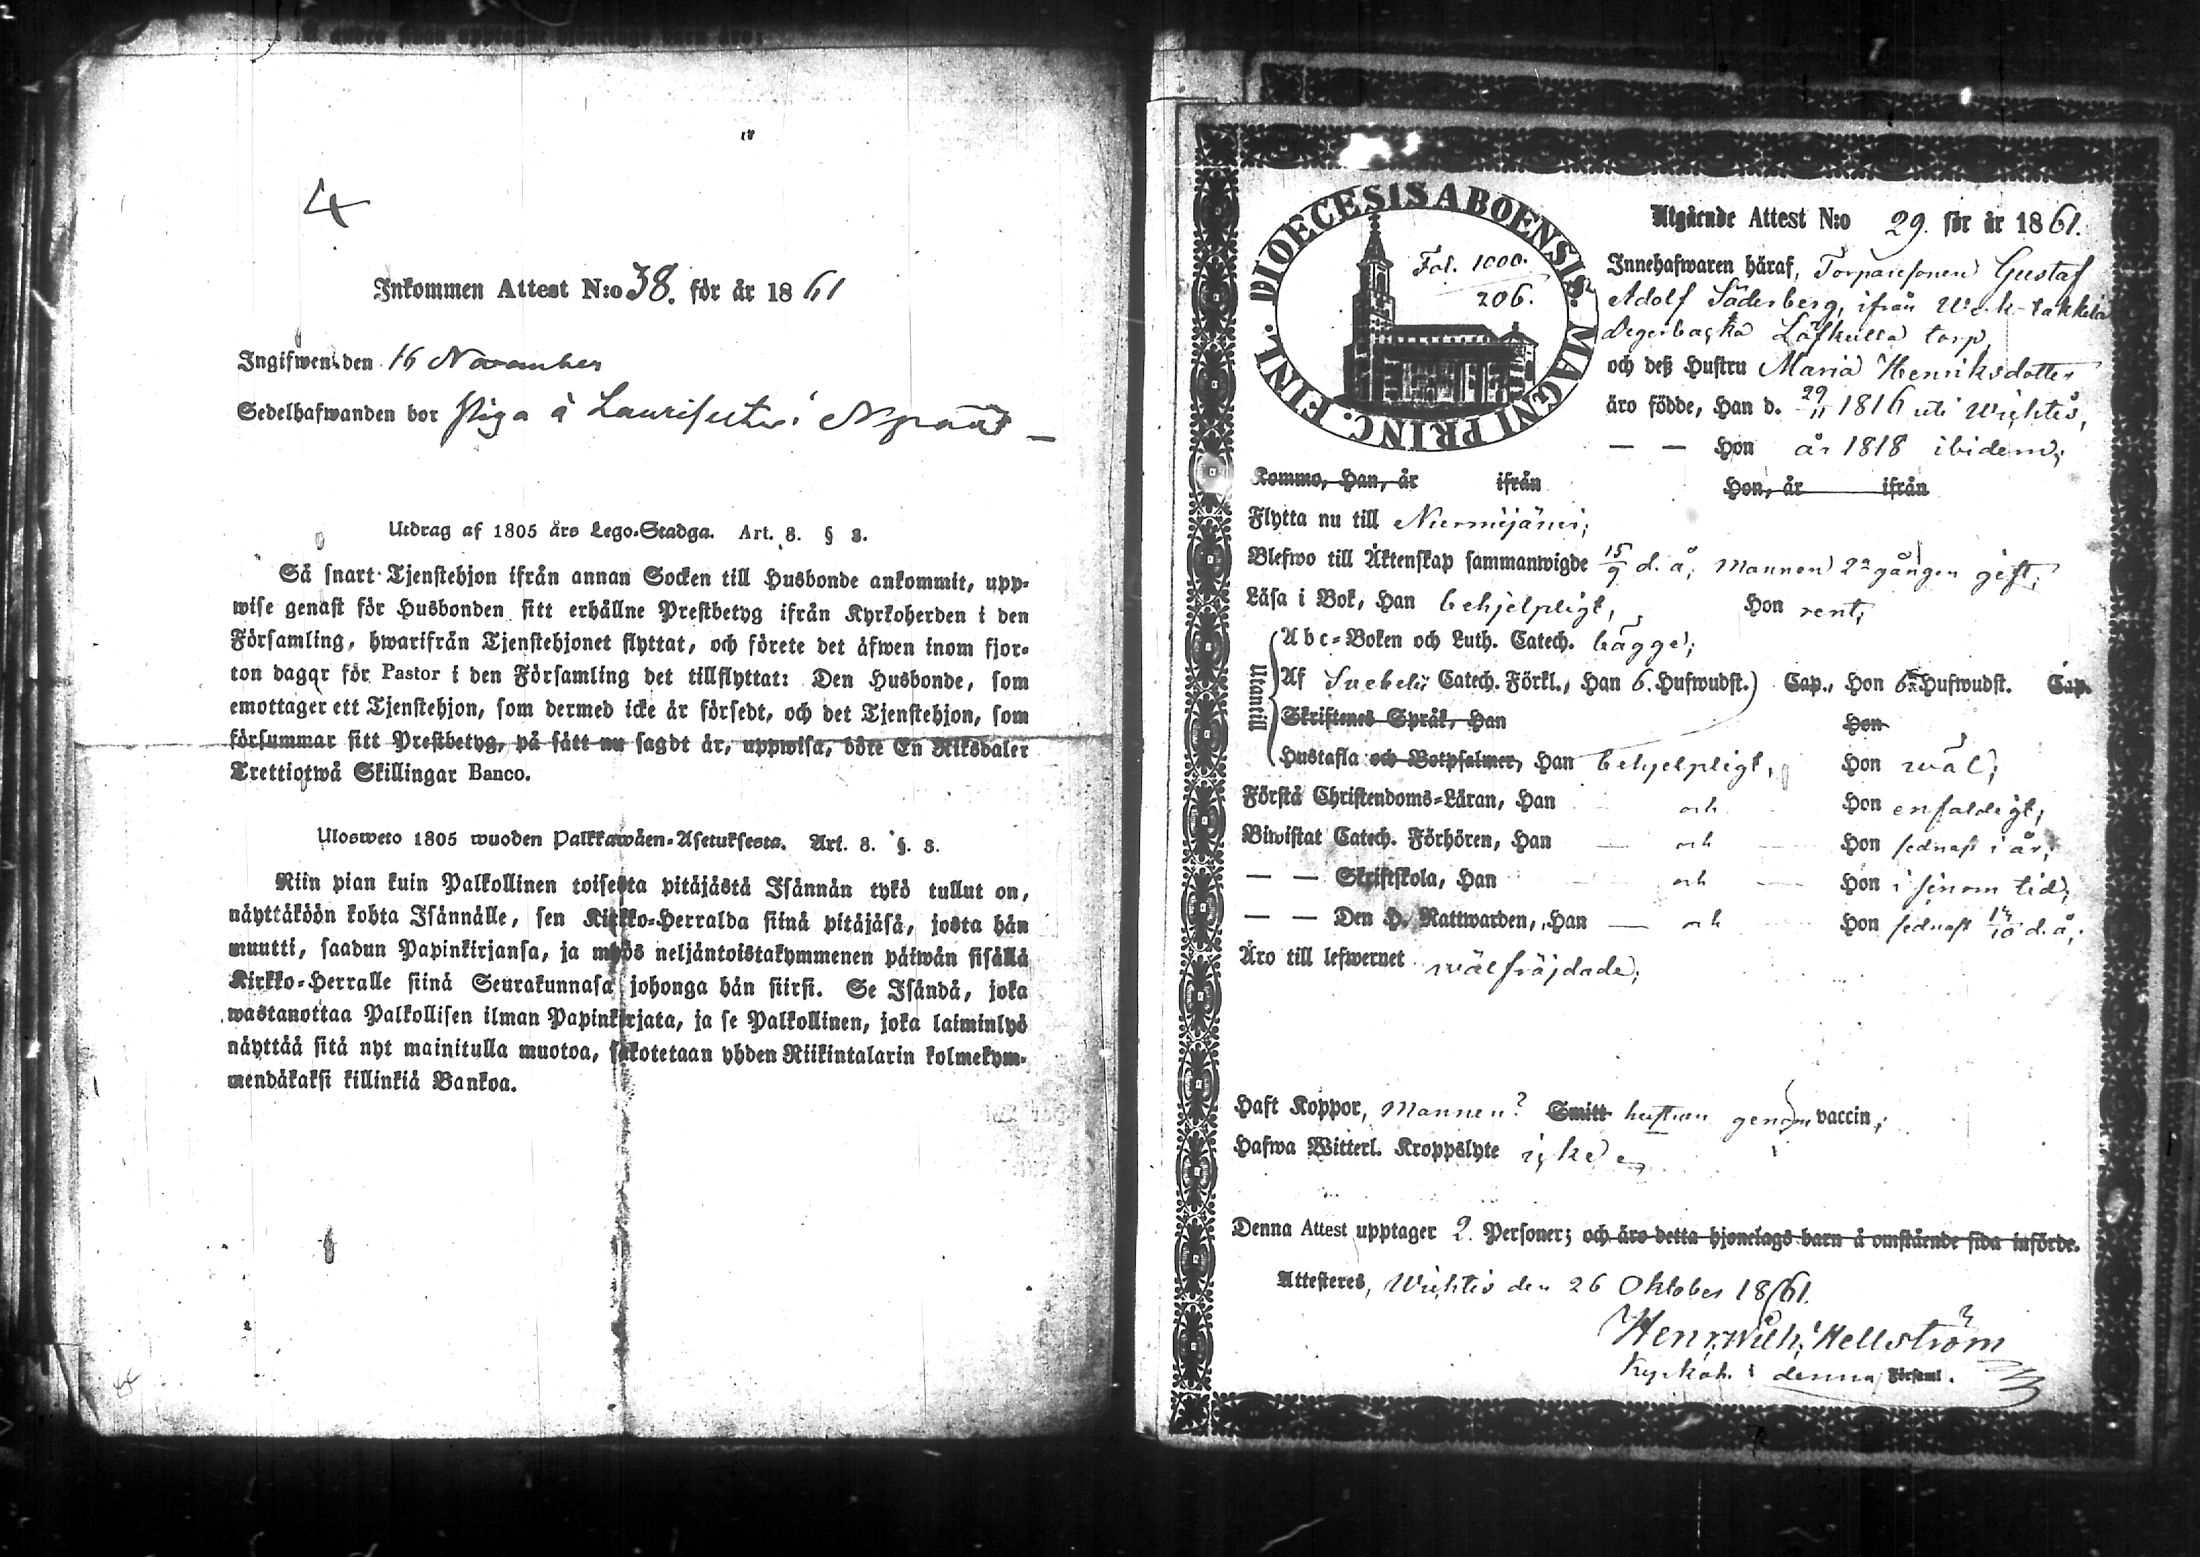 4
Inkommen Attest N:o 38. för år 1861
Ingifwen den 16 November
Sedelhafwanden bor Piga å
Utdrag af 1805 års Lego-Stadga. Art. 8. § 3.
Så snart Tjenstehjon ifrån annan Socken till Husbonde ankommit, upp-
wise genast för Husbonden sitt erhållne Prestbetyg ifrån Kyrkoherden i den
Församling, hwarifrån Tjenstehjonet flyttat, och förete det äfwen inom fjor-
ton dagar för Pastor i den Församling det tillflyttat: Den Husbonde, som
emottager ett Tjenstehjon, som dermed icke är försedt, och det Tjenstehjon, som
försummar sitt Prestbetyg, på sätt nu sagdt är, uppwisa, böte En Riksdaler
Trettiotwå Skillingar Banco.
Uloswето 1805 wuoden Palkkawäen-Asetuksesta. Art. 8. §. 3.
Niin pian kuin Palkollinen toisesta pitäjästä Isännän tykö tullut on,
näyttäköön kohta Isännälle, sen Kirkko-Herralda siinä pitäjäsä, josta hän
muutti, saadun Papinkirjansa, ja myös neljäntoistakymmenen päiwän sisällä
Kirkko-Herralle siinä Seurakunnasa johonga hän siirsi. Se Isändä, joka
wastanottaa Palkollisen ilman Papinkirjata, ja se Palkollinen, joka laiminlyö
näyttää sitä nyt mainitulla muotoa, sakotetaan yhden Riikintalarin kolmekym-
mendäkaksi killinkiä Bankoa.
DIOECESIS ABOENSIS. MAGNI PRINC. FINL.
Fol. 1000.
206.
Utgående Attest N:o 29. för år 1861.
Innehafwaren häraf, Torparesonen Gustaf
Adolf Söderberg, ifrån
Degerbacka Löfkulla torp,
och deß Hustru Maria Henriksdotter
äro födde, Han d. 29/11 1816 uti Wichtis,
— — Hon år 1818 ibidem;
Kommo, Han, år ifrån Hon, år ifrån
Flytta nu till Nurmijärvi;
Blefwo till Äktenskap sammanwigde 15/9 d. å; Mannen 2a gången gift;
Läsa i Bok, Han behjelpligt, Hon rent;
Utantill
Abc-Boken och Luth. Catech. bägge;
Af Svebelii Catech. Förkl., Han 6. Hufwudst.) Cap., Hon 6 Hufwudst. Cap.
Skriftenes Språk, Han Hon
Hustafla och Botpsalmer, Han behjelpligt, Hon wäl;
Förstå Christendoms-Läran, Han och Hon enfaldigt;
Biwistat Catech. Förhören, Han — och Hon sednast i år;
— — Skriftskola, Han — och — Hon i sinom tid;
— — Den H. Nattwarden, Han — och — Hon sednast 14/10 d. å;
Äro till lefwernet wälfräjdade;
Haft Koppor, Mannen? Smitt hustrun genom vaccin;
Hafwa Witterl. Kroppslyte icke
Denna Attest upptager 2. Personer; och äro detta hjonelags barn å omstående sida införde.
Attesteres, Wichtis den 26 Oktober 1861.
Henr. Wilh. Hellström
Kyrkoh. i denna Församl.